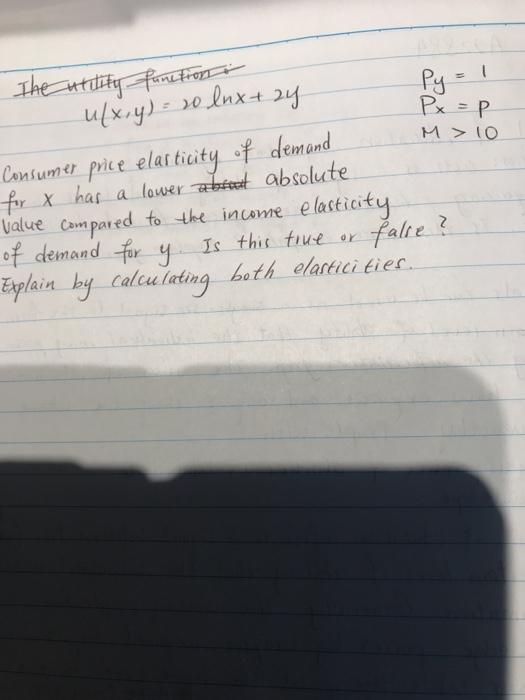 The utility function:
u(x,y) = 20 lnx + 2y
Py = 1
Px = P
M > 10
Consumer price elasticity of demand
for x has a lower absout absolute
Value compared to the income elasticity
of demand for y. Is this true or false?
Explain by calculating both elasticities.